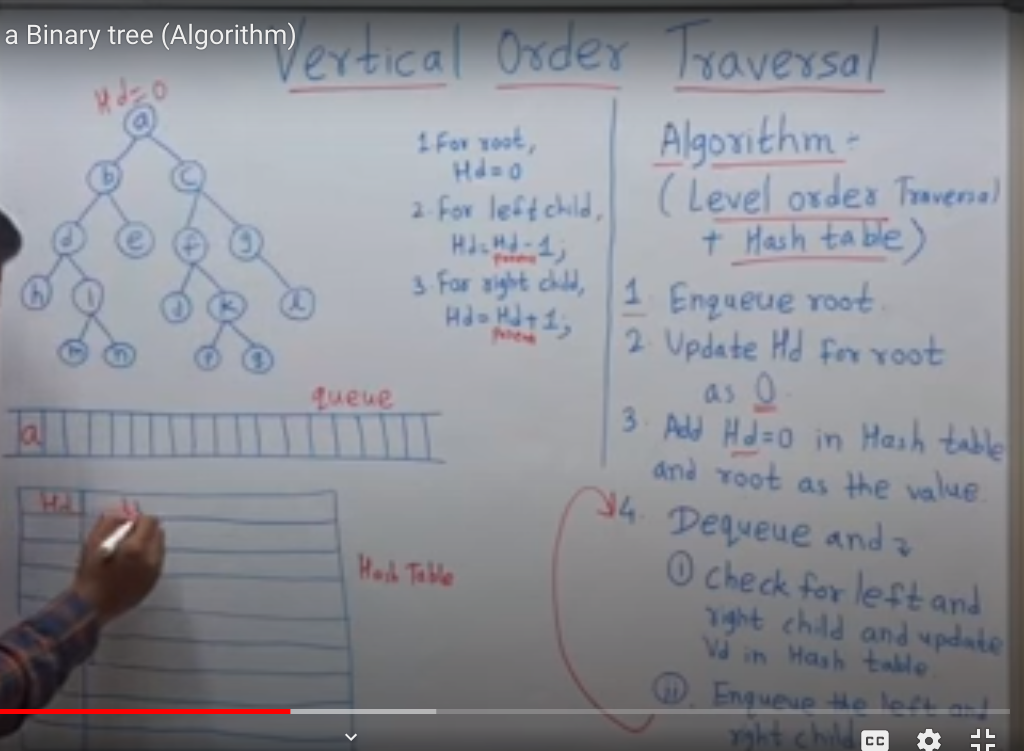 a Binary tree (Algorithm)
Vertical Order Traversal
Hd=0
a
b c
d e f g
h i j k l
m n
queue
a
Hd
Hash Table
1. For root,
Hd=0
2. For left child,
Hd=Hd-1;
parent
3. For right child,
Hd=Hd+1;
parent
Algorithm:-
(Level order Traversal
+ Hash table)
1. Enqueue root.
2. Update Hd for root
as 0.
3. Add Hd=0 in Hash table
and root as the value.
4. Dequeue and
(i) check for left and
right child and update
Vd in Hash table.
(ii). Enqueue the left and
right child
CC